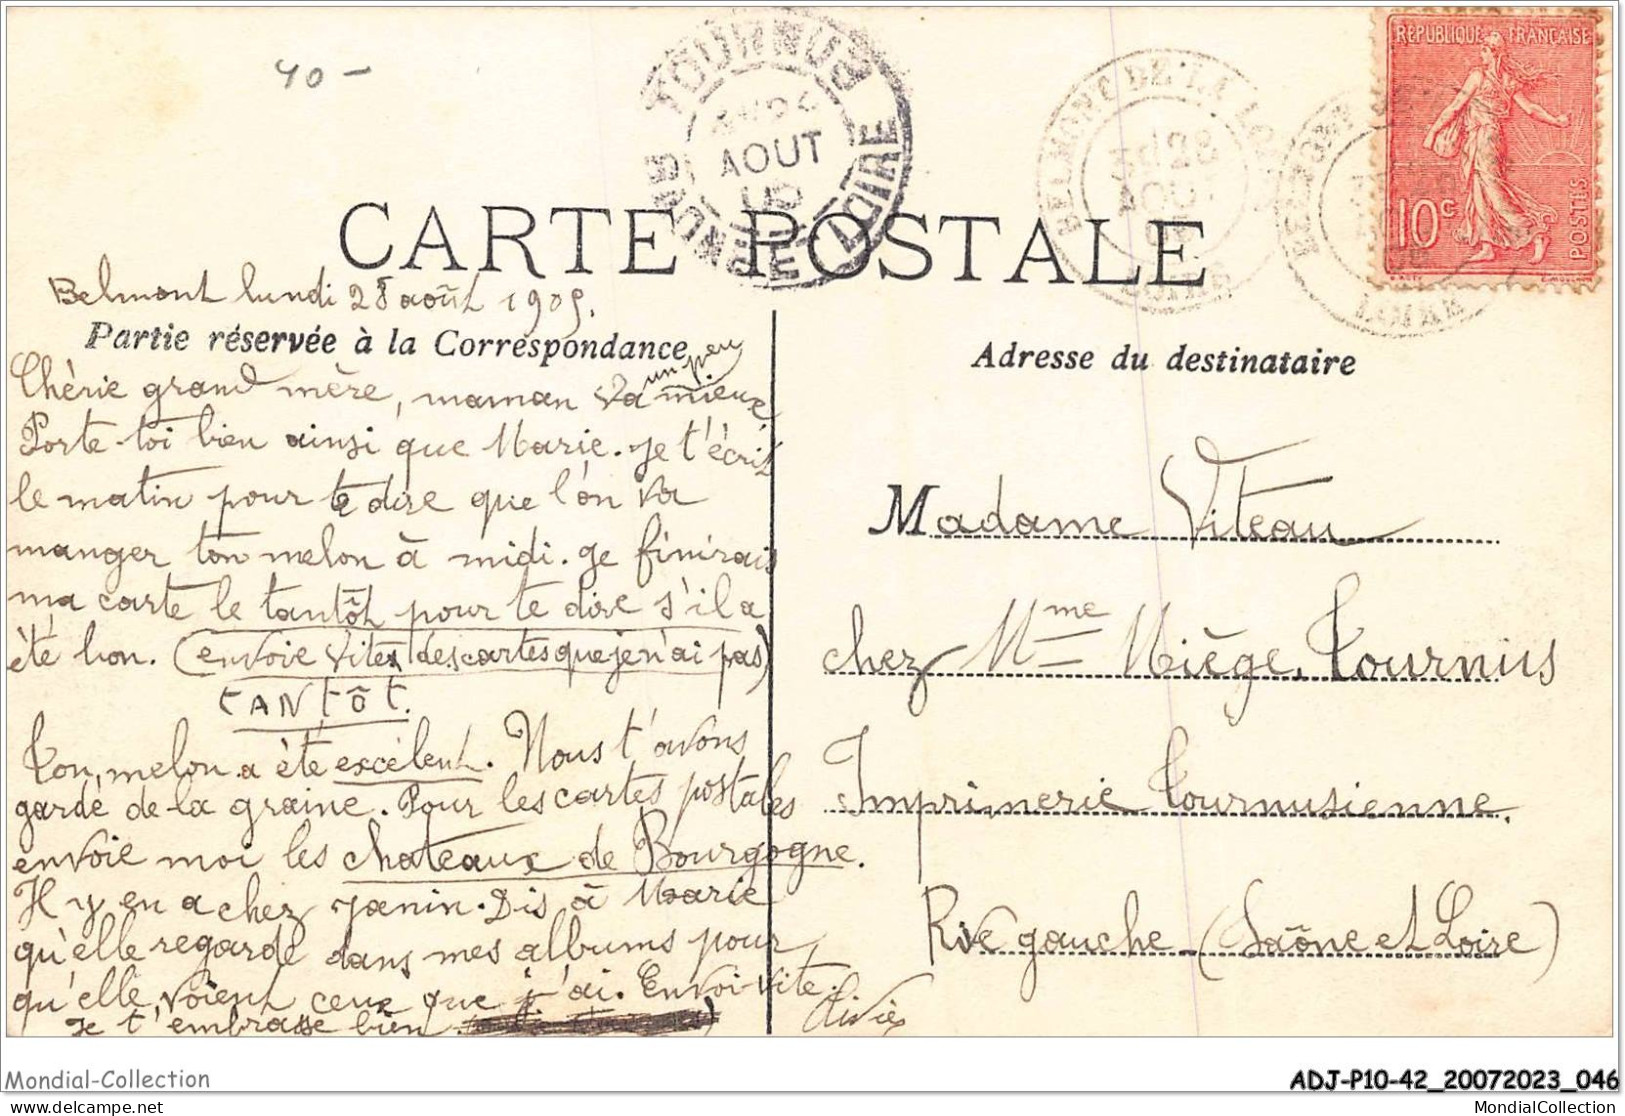 40-
TOURNUS
AOUT
SAONE ET LOIRE
BELMONT DE LA LOIRE
28
AOUT
LOIRE
REPUBLIQUE FRANÇAISE
10c
POSTES
CARTE POSTALE
Belmont lundi 28 août 1905.
Partie réservée à la Correspondance
Adresse du destinataire
Chèrie grand mère, maman va un peu mieux
Porte-toi bien ainsi que Marie. Je t'écris
le matin pour te dire que l'on va
manger ton melon à midi. Je finirais
ma carte le tantôt pour te dire s'il a
été bon. (envoie vite des cartes que je n'ai pas)
TANTÔT.
Ton melon a été excélent. Nous t'avons
gardé de la graine. Pour les cartes postales
envoie moi les chateaux de Bourgogne.
Il y en a chez Janin. Dis à Marie
qu'elle regarde dans mes albums pour
qu'elle voient ceux que j'ai. Envoi-vite.
Je t'embrasse bien
Madame Viteau
chez Mme Miège, Tournus
Imprimerie Tournusienne,
Rive gauche - (Saône et Loire)
Mondial-Collection
ADJ-P10-42_20072023_046
delcampe.net
MondialCollection